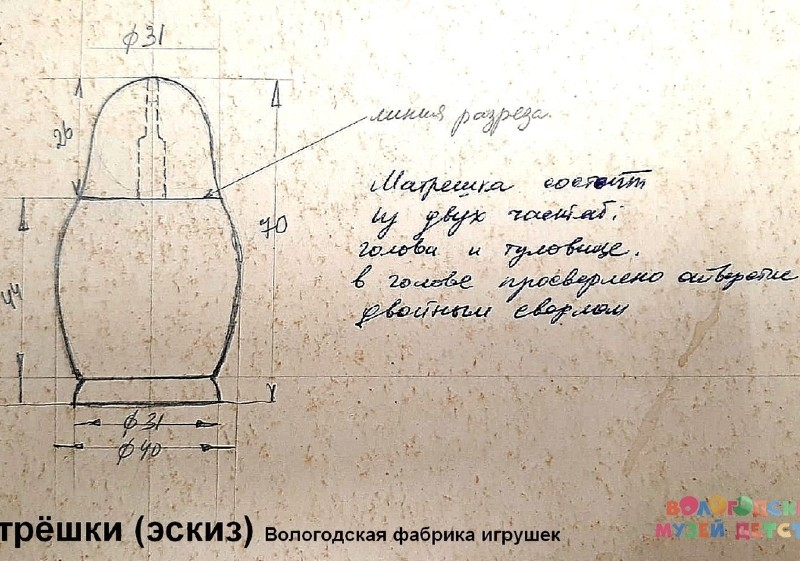 ф31
линия разреза.
26
Матрешка состоит
из двух частей:
70
голова и туловище.
в голове просверлено отверстие
44
двойным сверлом
ф31
ф40
трёшки (эскиз) Вологодская фабрика игрушек
ВОЛОГОДСК
МУЗЕЙ ДЕТСТ